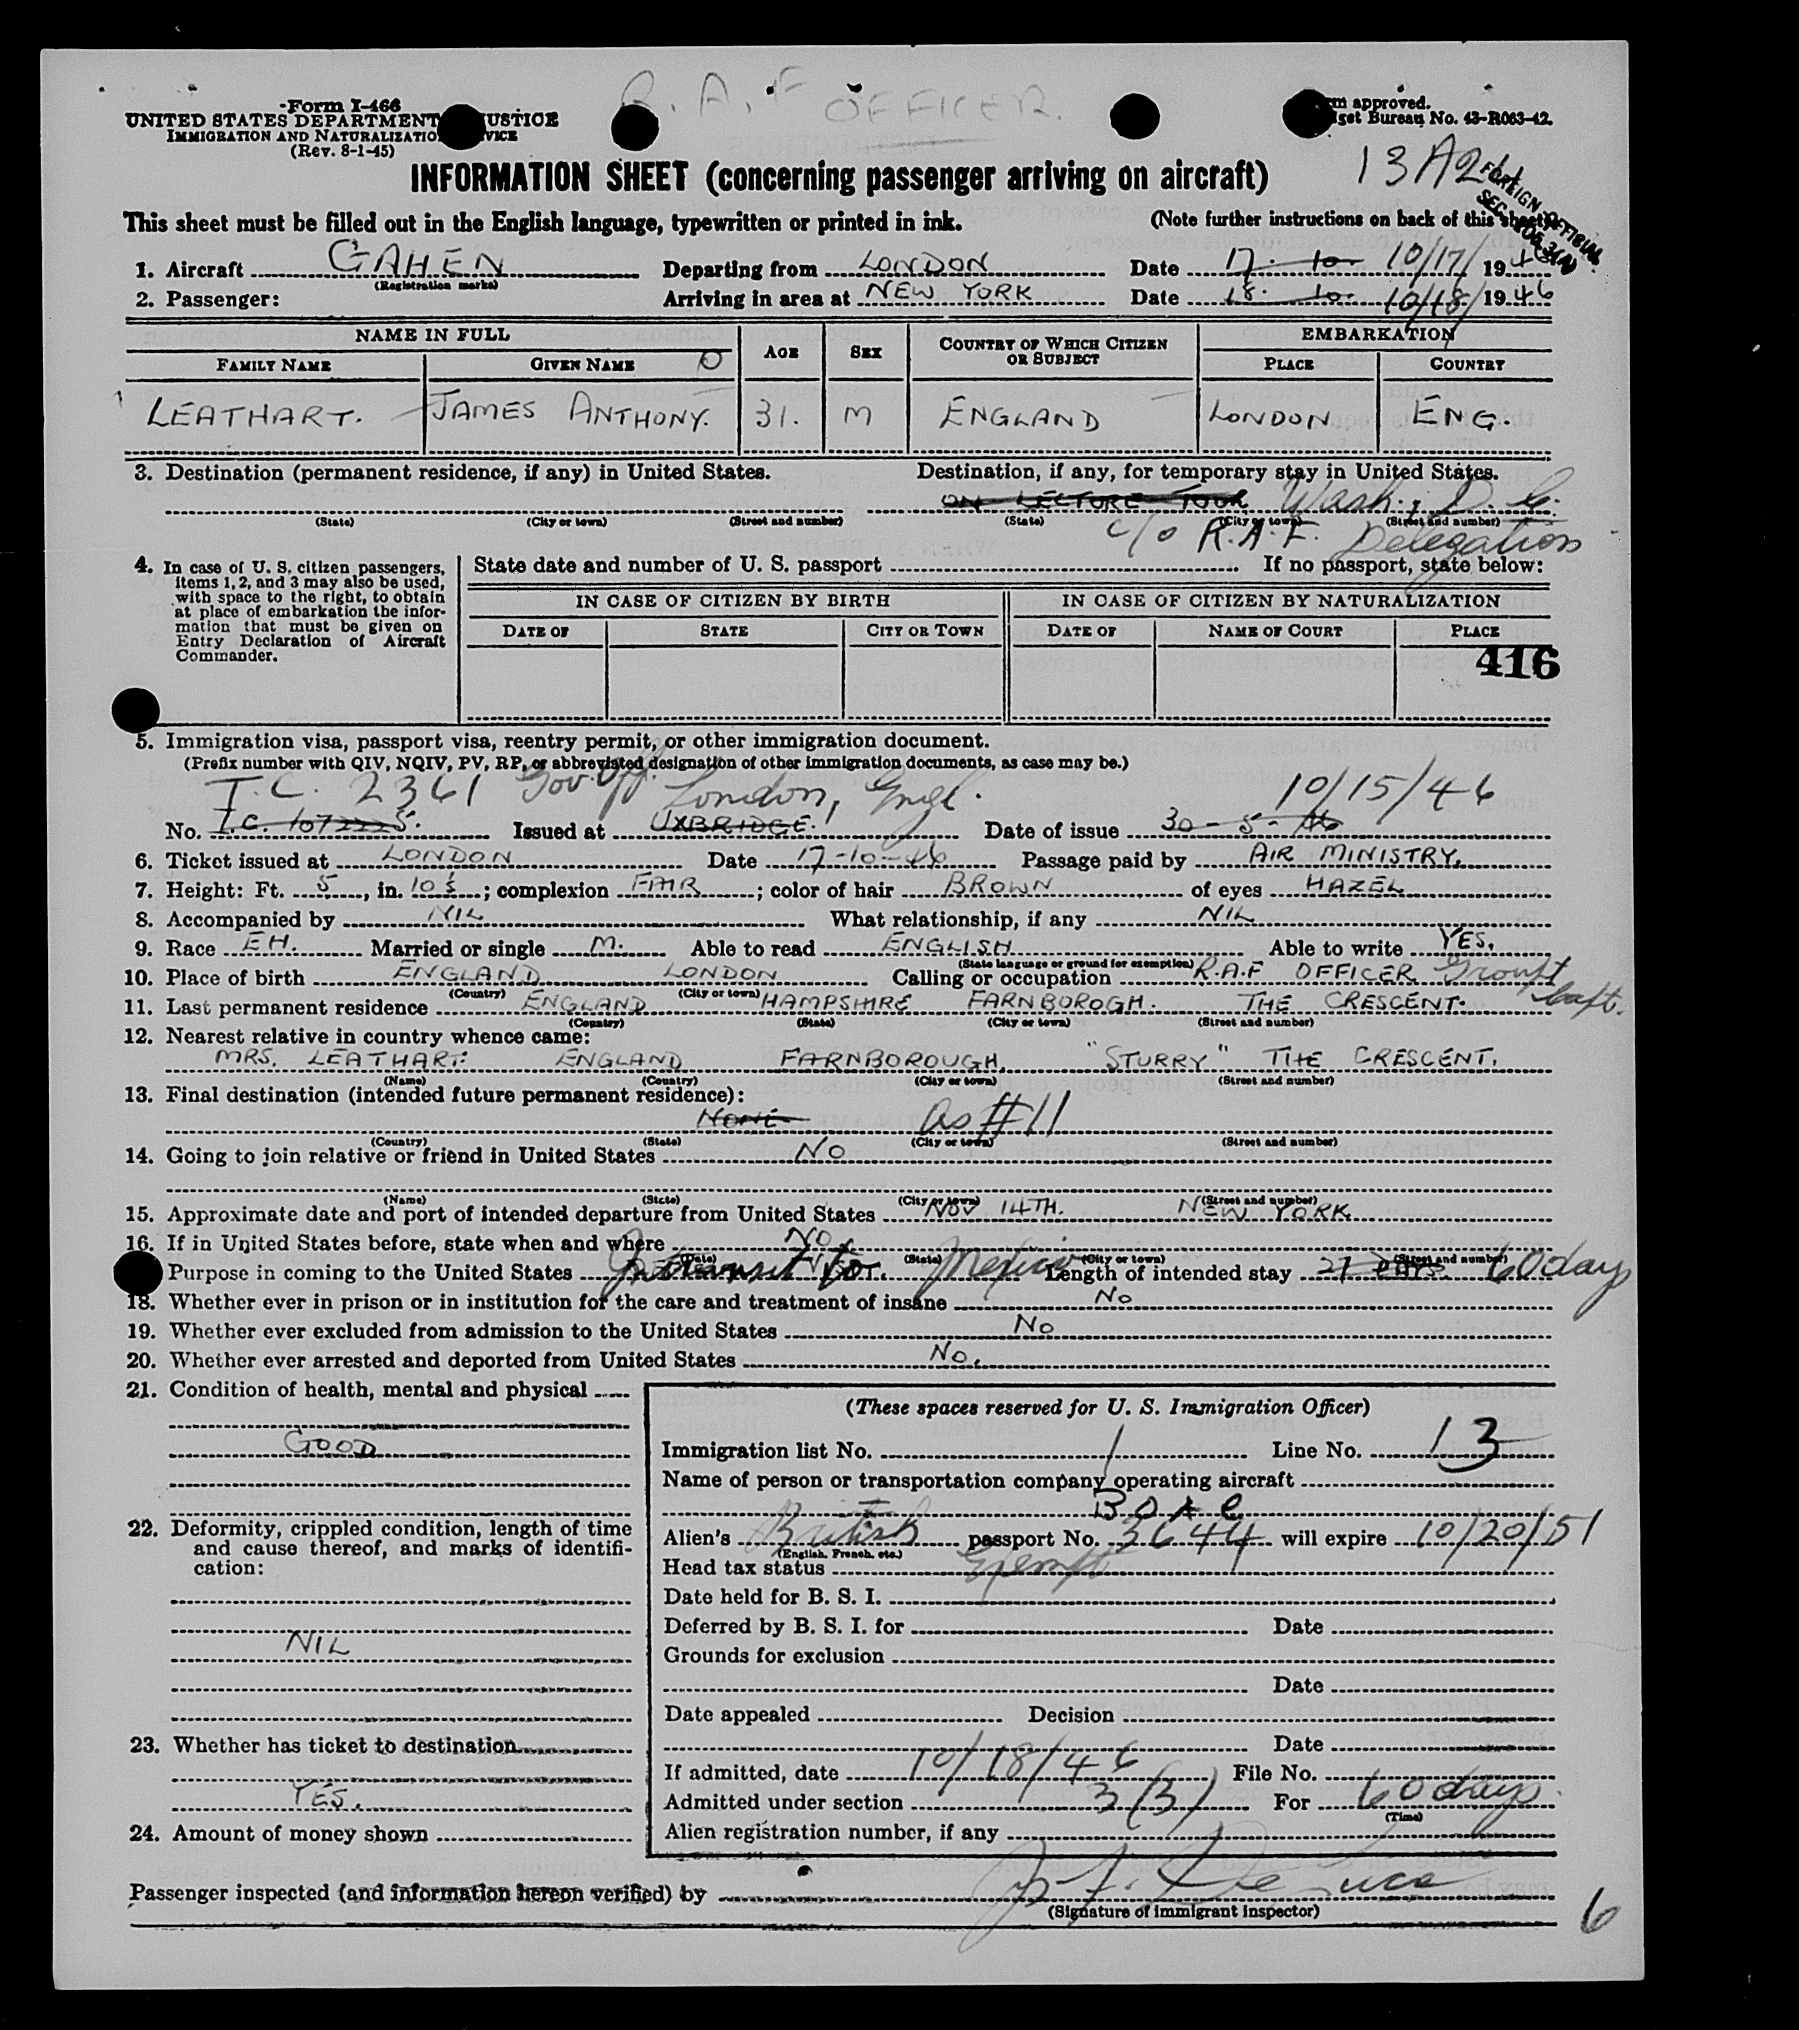 R.A.F OFFICER.
Form I-466
UNITED STATES DEPARTMENT USTICE
IMMIGRATION AND NATURALIZATIO VICE
(Rev. 8-1-45)
m approved.
get Bureau No. 43-R063-42.
INFORMATION SHEET (concerning passenger arriving on aircraft)
13 A2
FOREIGN OFFICIAL
SEC.
This sheet must be filled out in the English language, typewritten or printed in ink. (Note further instructions on back of this sheet)
1. Aircraft GAHEN Departing from LONDON Date 17. 10. 10/17/ 1946
(Registration marks)
2. Passenger: Arriving in area at NEW YORK Date 18. 10. 10/18/ 1946
NAME IN FULL AGE SEX COUNTRY OF WHICH CITIZEN OR SUBJECT EMBARKATION
FAMILY NAME GIVEN NAME PLACE COUNTRY
LEATHART. JAMES ANTHONY. 31. M ENGLAND LONDON ENG.
3. Destination (permanent residence, if any) in United States. Destination, if any, for temporary stay in United States.
ON LECTURE TOUR Wash., D.C.
(State) (City or town) (Street and number) (State) (City or town) (Street and number)
c/o R.A.F. Delegation
4. In case of U. S. citizen passengers, items 1, 2, and 3 may also be used, with space to the right, to obtain at place of embarkation the information that must be given on Entry Declaration of Aircraft Commander.
State date and number of U. S. passport If no passport, state below:
IN CASE OF CITIZEN BY BIRTH IN CASE OF CITIZEN BY NATURALIZATION
DATE OF STATE CITY OR TOWN DATE OF NAME OF COURT PLACE
416
5. Immigration visa, passport visa, reentry permit, or other immigration document.
(Prefix number with QIV, NQIV, PV, RP, or abbreviated designation of other immigration documents, as case may be.)
T.C. 2361 Gov. Off. London, Engl. 10/15/46
No. I.C. 1072225. Issued at UXBRIDGE. Date of issue 30-5-46
6. Ticket issued at LONDON Date 17-10-46 Passage paid by AIR MINISTRY.
7. Height: Ft. 5, in. 10½; complexion FAIR; color of hair BROWN of eyes HAZEL
8. Accompanied by NIL What relationship, if any NIL
9. Race EH. Married or single M. Able to read ENGLISH Able to write YES.
(State language or ground for exemption)
10. Place of birth ENGLAND LONDON Calling or occupation R.A.F OFFICER Group Capt.
(Country) (City or town)
11. Last permanent residence ENGLAND HAMPSHIRE FARNBOROGH. THE CRESCENT.
(Country) (State) (City or town) (Street and number)
12. Nearest relative in country whence came:
MRS. LEATHART ENGLAND FARNBOROUGH, "STURRY" THE CRESCENT.
(Name) (Country) (City or town) (Street and number)
13. Final destination (intended future permanent residence):
NONE as #11
(Country) (State) (City or town) (Street and number)
14. Going to join relative or friend in United States NO
(Name) (State) (City or town) (Street and number)
15. Approximate date and port of intended departure from United States NOV 14TH. NEW YORK
16. If in United States before, state when and where NO
(Date) (State) (City or town) (Street and number)
Purpose in coming to the United States In transit to Mexico Length of intended stay 27 DAYS. 60 days
18. Whether ever in prison or in institution for the care and treatment of insane NO
19. Whether ever excluded from admission to the United States NO
20. Whether ever arrested and deported from United States NO.
21. Condition of health, mental and physical
GOOD
22. Deformity, crippled condition, length of time and cause thereof, and marks of identification:
NIL
23. Whether has ticket to destination
YES.
24. Amount of money shown
(These spaces reserved for U. S. Immigration Officer)
Immigration list No. 1 Line No. 13
Name of person or transportation company operating aircraft
BOAC
Alien's British passport No. 3644 will expire 10/20/51
(English, French, etc.)
Head tax status Exempt
Date held for B. S. I.
Deferred by B. S. I. for Date
Grounds for exclusion
Date
Date appealed Decision
Date
If admitted, date 10/18/46 File No.
Admitted under section 3(3) For 60 days
(Time)
Alien registration number, if any
Passenger inspected (and information hereon verified) by
(Signature of immigrant inspector)
6